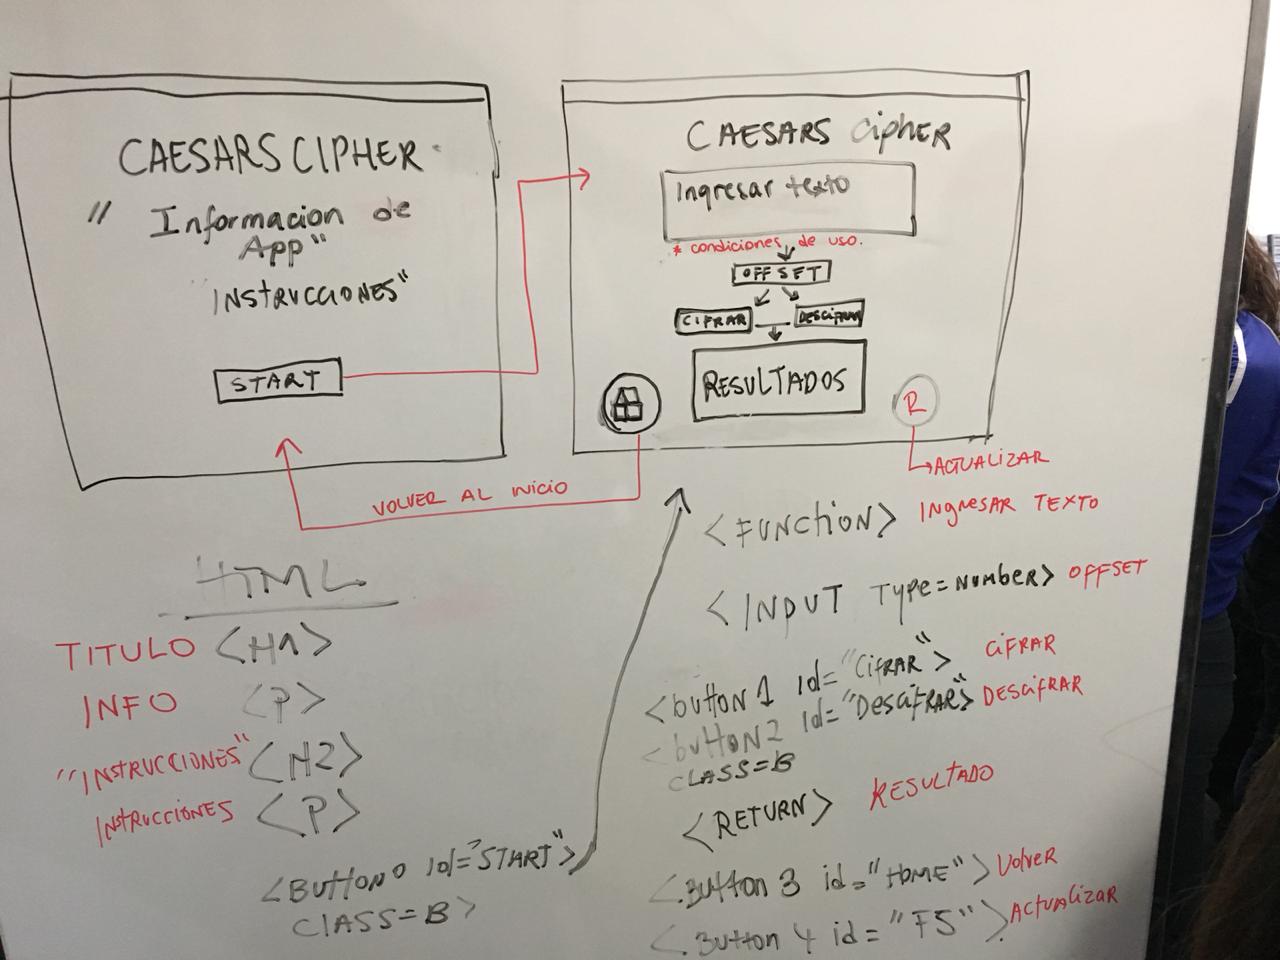 CAESARS CIPHER
" Informacion de
App"
"INSTRUCCIONES"
START
CAESARS Cipher
Ingresar texto
* condiciones de uso.
OFFSET
CIFRAR
DESCIFRAR
RESULTADOS
R
ACTUALIZAR
VOLVER AL INICIO
HTML
TITULO <H1>
INFO <P>
"INSTRUCCIONES" <H2>
INSTRUCCIONES <P>
<BUTTON0 id="START">
CLASS=B>
<FUNCTION> INGRESAR TEXTO
<INPUT Type=NUMBER> OFFSET
<button1 id="CIFRAR"> CIFRAR
<button2 id="DesciFRAR"> DESCIFRAR
CLASS=B
<RETURN> RESULTADO
<.Button 3 id="HOME"> Volver
<.Button 4 id="F5"> Actualizar